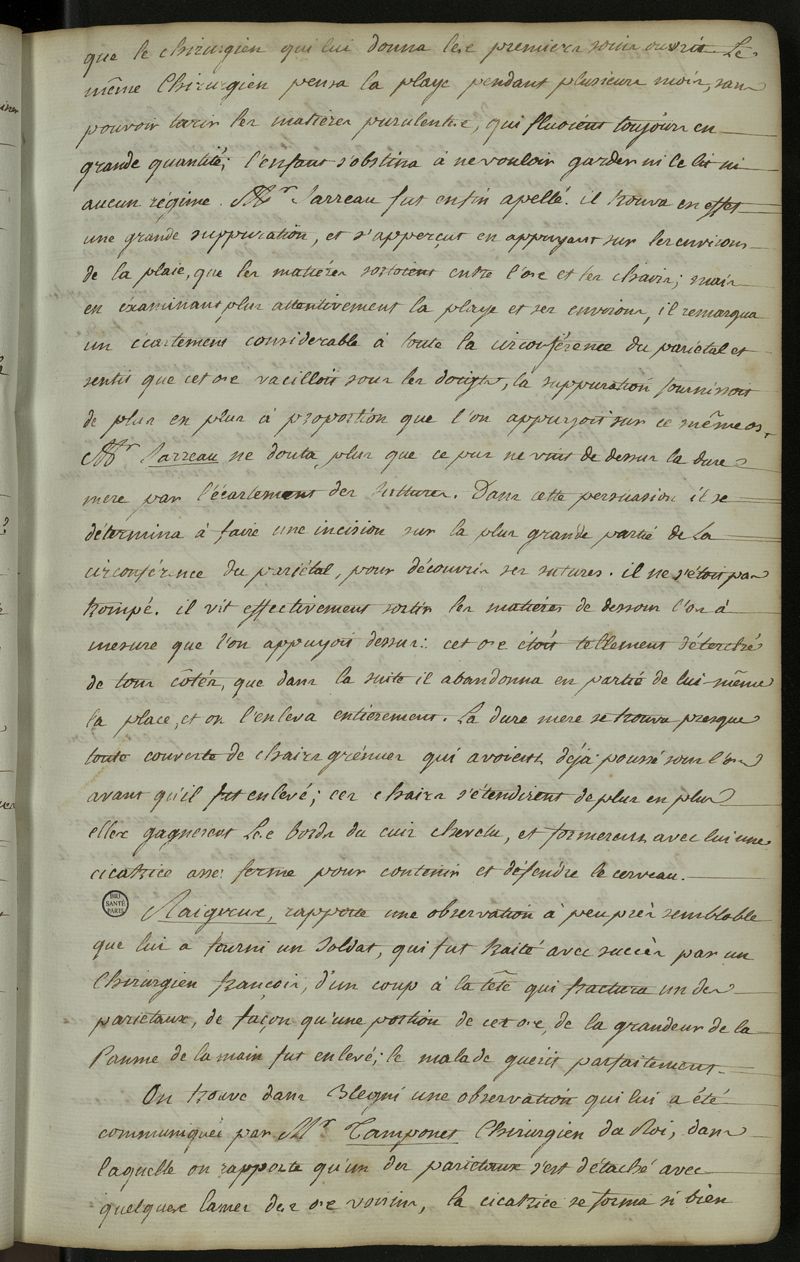 que le chirurgien qui lui donna les premiers soins ouvrit Le
même Chirurgien pensa la playe pendant plusieurs mois, sans
pouvoir tarir les matieres purulentes, qui fluoient toujours en
grande quantité; l'enfant s'obstina à ne vouloir garder ni le lit ni
aucun régime. Mr. Sarreau fut enfin apellé. il trouva en effet
une grande suppuration, et s'apperçut en appuyant sur les environs
de la plaie, que les matiéres sortoient entre l'os et les chairs; mais
en éxaminant plus attentivement la playe et ses environs, il remarqua
un écartement considerable à toute la circonférence du pariétal et
sentit que cet os vacilloit sous les doigts, la suppuration fournissoit
de plus en plus à proportion que l'on appuyoit sur ce même os.
Mr. Sarreau ne douta plus que ce pus ne vint de dessus la dure
mere par l'écartement des sutures. Dans cette persuasion il se
détermina à faire une incision sur la plus grande partie de la
circonférence du pariétal, pour découvrir ses sutures. il ne s'étoit pas
trompé. il vit effectivement sortir les matiéres de dessous l'os à
mesure que l'on appuyoit dessus: cet os étoit tellement détaché
de tous côtés, que dans la suite il abandonna en partie de lui-même
la place, et on l'enleva entierement. La dure mere se trouva presque
toute couverte de chairs grénues qui avoient déja poussé sous l'os
avant qu'il fut enlevé; ces chairs s'étendirent de plus en plus
elles gagnerent les bords du cuir chevelu, et formerent avec lui une
cicatrice assés ferme pour contenir et défendre le cerveau.
BIU SANTÉ PARIS
Saigueux, rapporte une observation à peu près semblable
que lui a fourni un Soldat, qui fut traité avec succès par un
Chirurgien françois, d'un coup à la tête qui fractura un des
pariétaux, de façon qu'une portion de cet os, de la grandeur de la
Paume de la main fut enlevé; le malade guérit parfaitement.
On trouve dans Blegni une observation qui lui a été
communiqués par Mr. Tamponet Chirurgien du Roi, dans
laquelle on rapporte qu'un des pariétaux s'est détaché avec
quelques lames des os voisins, la cicatrice se forma si bien